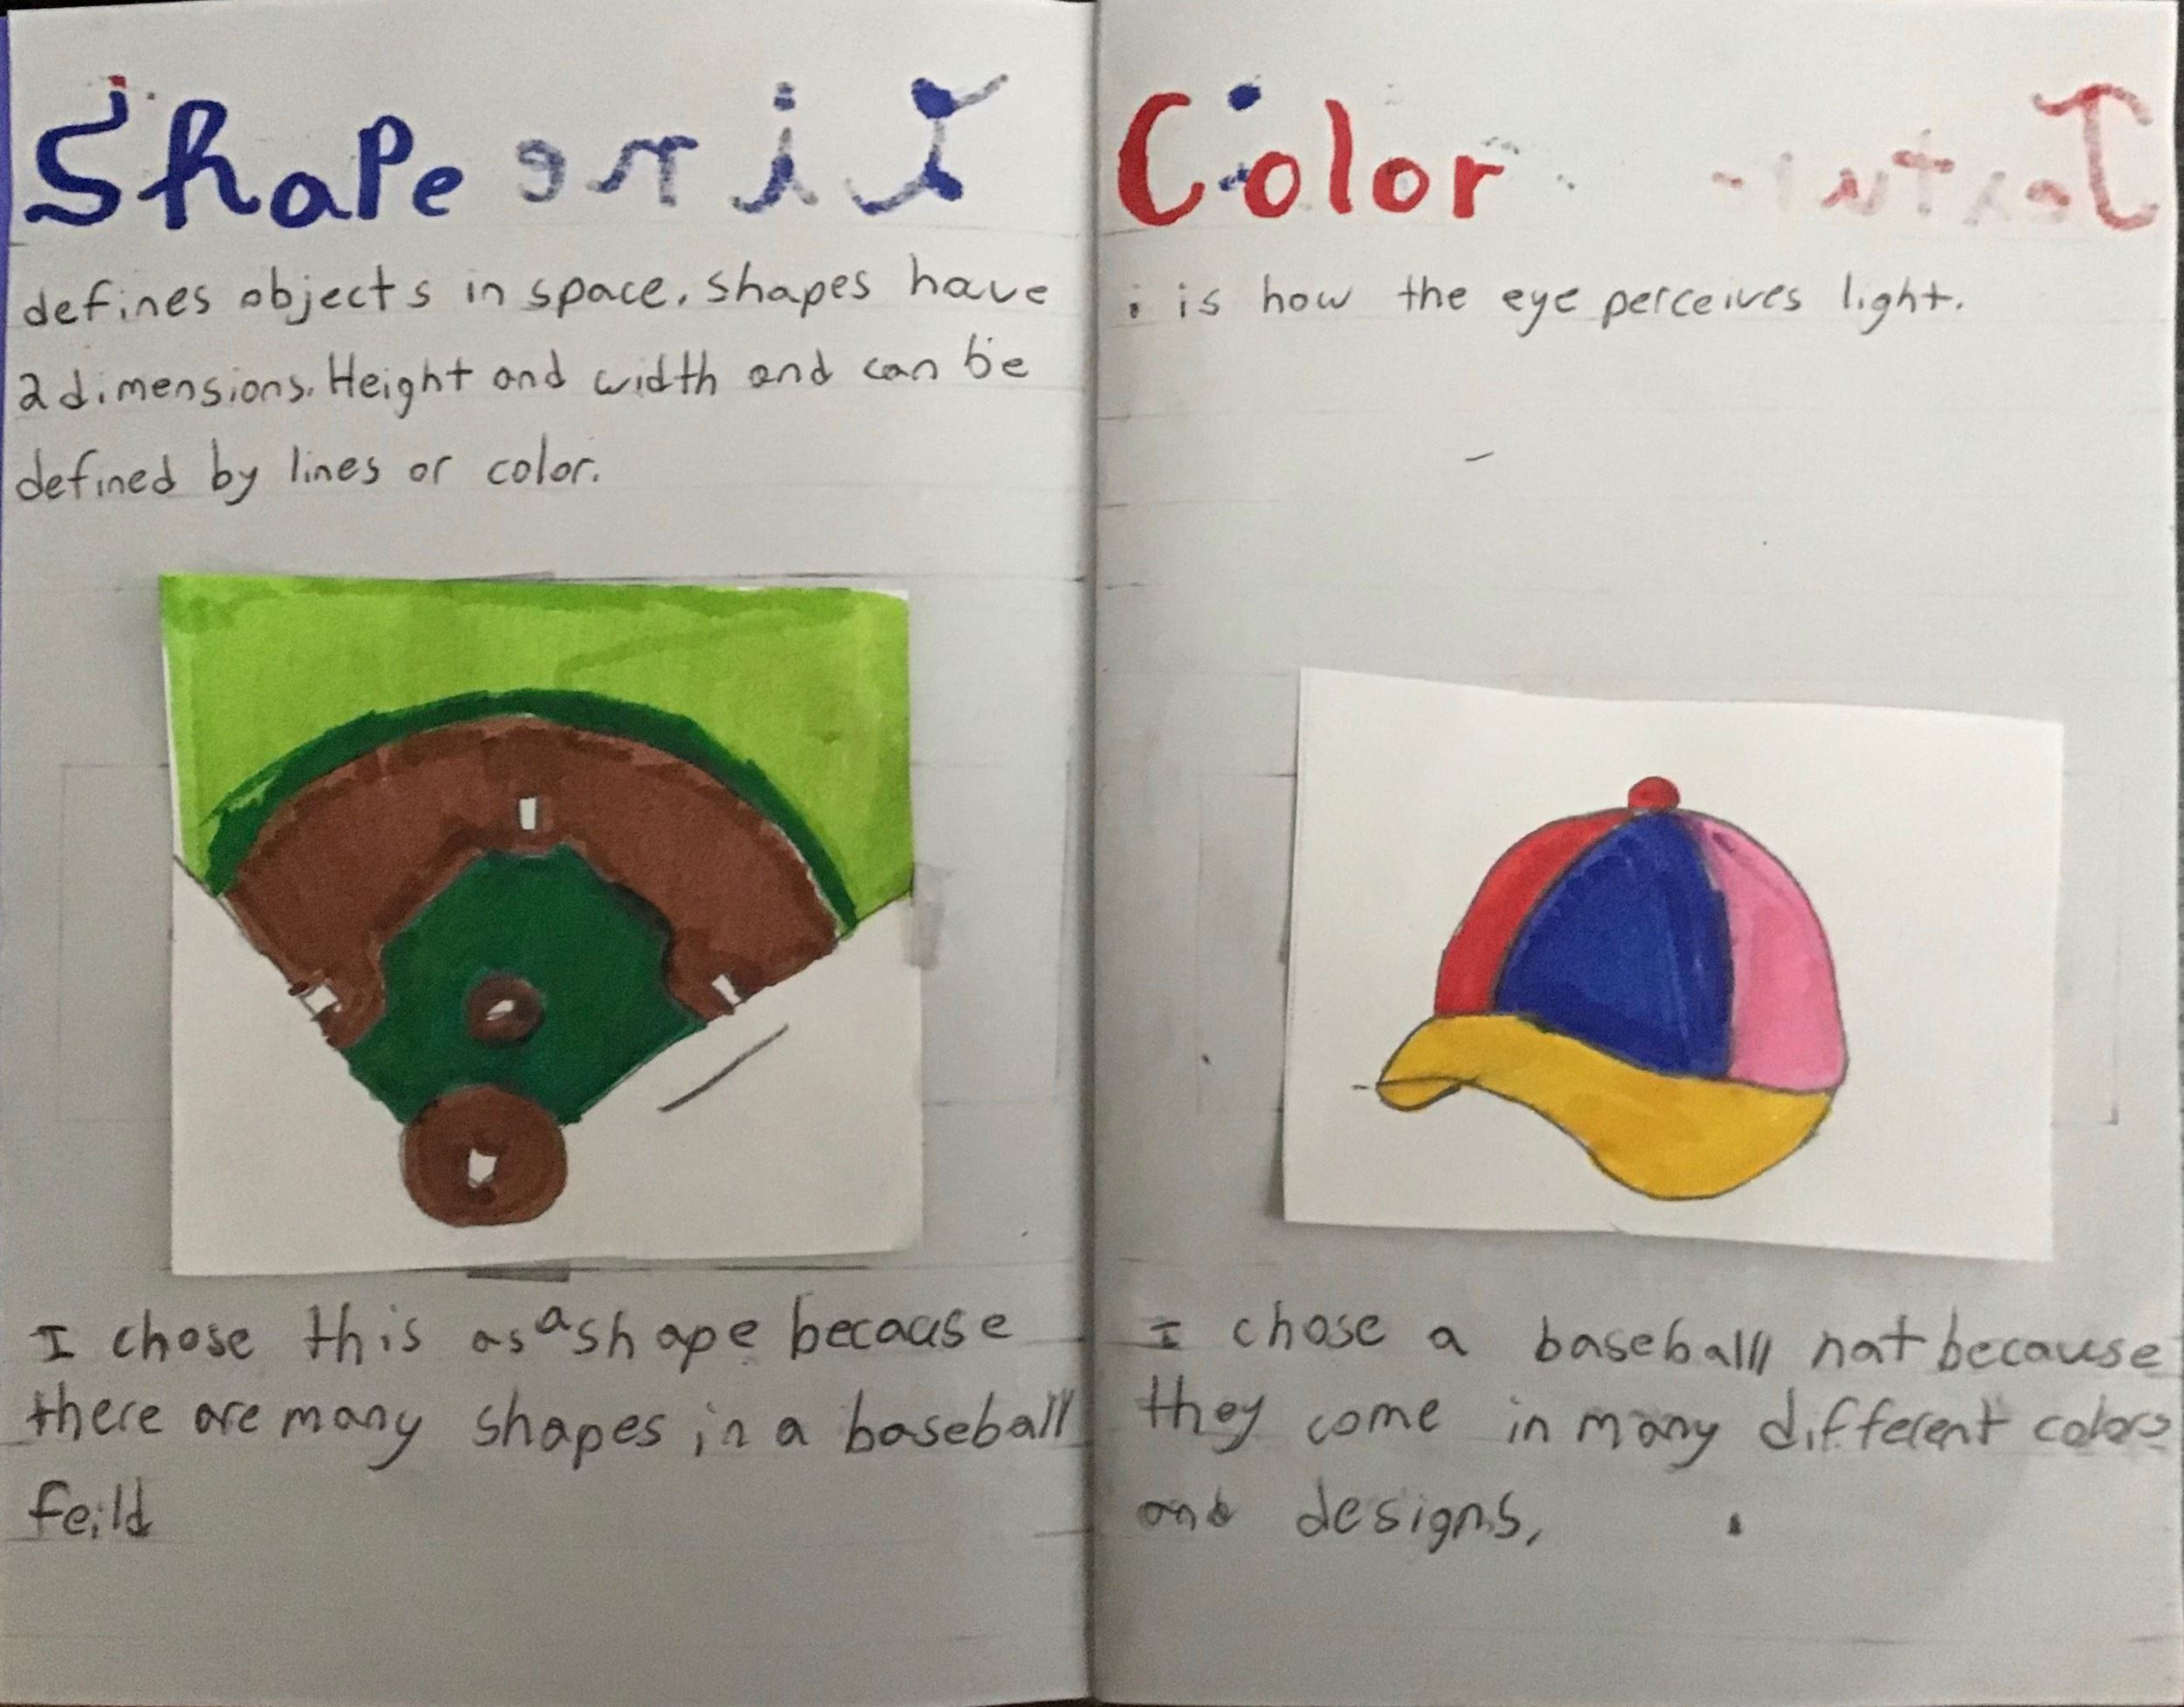 Shape Line
defines objects in space. shapes have
2 dimensions. Height and width and can be
defined by lines or color.
I chose this as a shape because
there are many shapes in a baseball
feild
Color Textur
is how the eye perceives light.
I chose a baseball hat because
they come in many different colors
and designs,